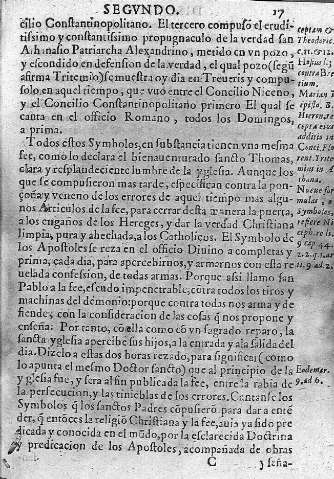 SEGVNDO. 17
cilio Constantinopolitano. El tercero compuso el erudi-
tissimo y constantissimo propugnaculo de la verdad san
Athanasio Patriarcha Alexandrino, metido en vn pozo,
y escondido en defension de la verdad, el qual pozo (segũ
afirma Tritemio) se muestra oy dia en Treueris y compu-
solo en aquel tiempo, que vuo entre el Concilio Niceno,
y el Concilio Constantinopolitano primero El qual se
canta en el officio Romano, todos los Domingos,
a prima.
Todos estos Symbolos, en substancia tienen vna mesma
fee, como lo declara el bienauenturado sancto Thomas,
clara y resplandeciente lumbre de la yglesia. Aunque los
que se compusieron mas tarde, especifican contra la pon-
çoña y veneno de los errores de aquel tiempo mas algu-
nos Articulos de la fee, para cerrar desta manera la puerta,
a los engaños de los Hereges, y dar la verdad Christiana
limpia, pura y ahechada, a los Catholicos. El Symbolo de
los Apostoles se reza en el officio Diuino a completas y
prima, cada dia, para apercebirnos, y armarnos con esta re
uelada confession, de todas armas. Porque assi llamo san
Pablo a la fee, escudo impenetrable, contra todos los tiros y
machinas del demonio: porque contra todas nos arma y de
fiende, con la consideracion de las cosas q̃ nos propone y
enseña: Por tanto, cõ ella como cõ vn sagrado reparo, la
sancta yglesia apercibe sus hijos, a la entrada y a la salida del
dia. Dizelo a estas dos horas rezado, para significar (como
lo apunta el mesmo Doctor sancto) que al principio de la
yglesia fue, y sera al fin publicada la fee, entre la rabia de
la persecucion, y las tinieblas de los errores. Cantanse los
Symbolos q̃ los sanctos Padres cõpusierõ para dar a enté
der, q̃ entõces la religiõ Christiana y la fee, auia ya sido pre
dicada y conocida en el mũdo, por la esclarecida Doctrina
y predicacion de los Apostoles, acompañada de obras
C y seña-
Theodoric.
Hieron.
Symbolos,
Eodem ar.
9. ad 6.